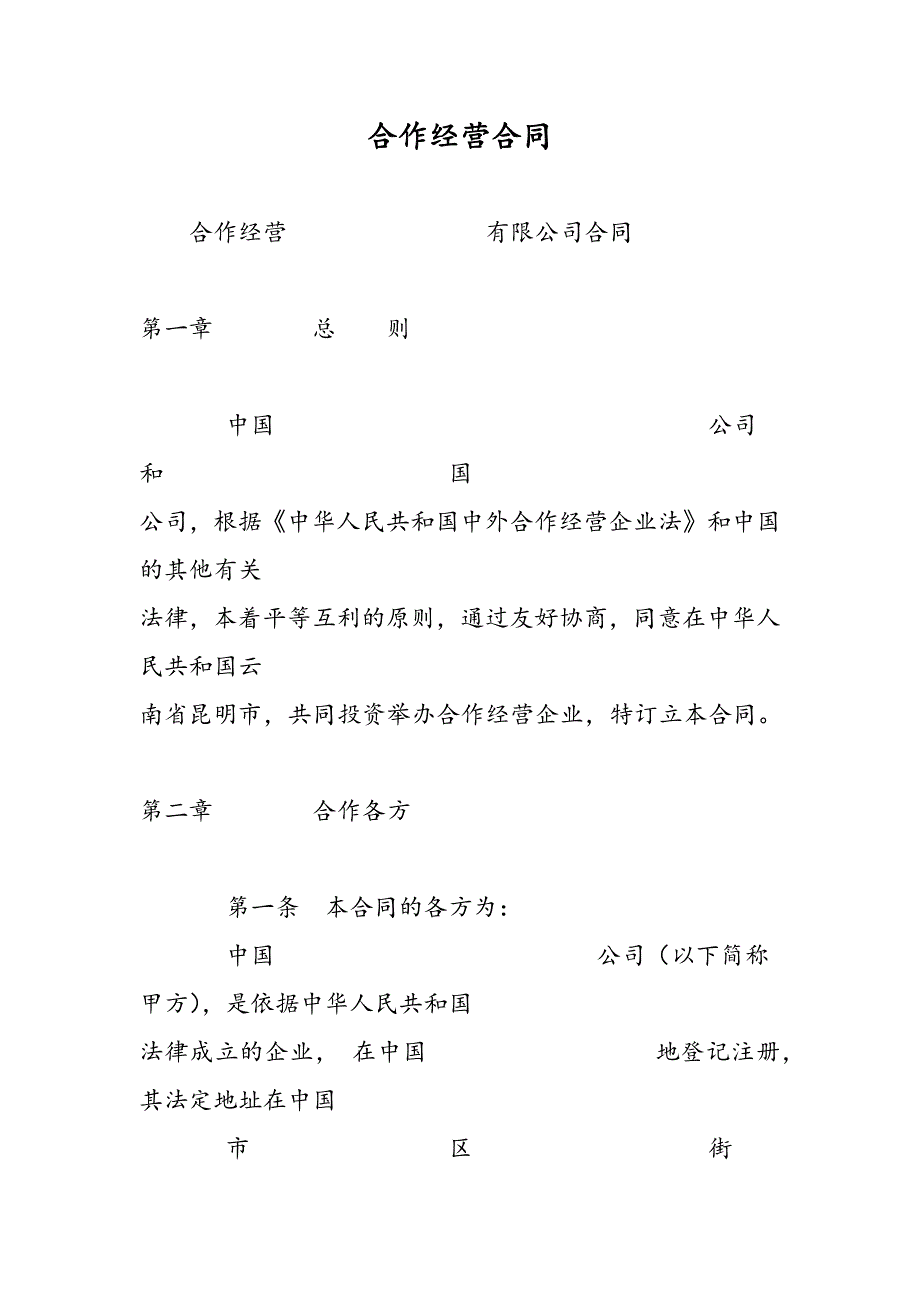 合作经营合同
合作经营 有限公司合同
第一章 总 则
中国 公司
和 国
公司，根据《中华人民共和国中外合作经营企业法》和中国
的其他有关
法律，本着平等互利的原则，通过友好协商，同意在中华人
民共和国云
南省昆明市，共同投资举办合作经营企业，特订立本合同。
第二章 合作各方
第一条 本合同的各方为：
中国 公司（以下简称
甲方），是依据中华人民共和国
法律成立的企业， 在中国 地登记注册，
其法定地址在中国
市 区 街